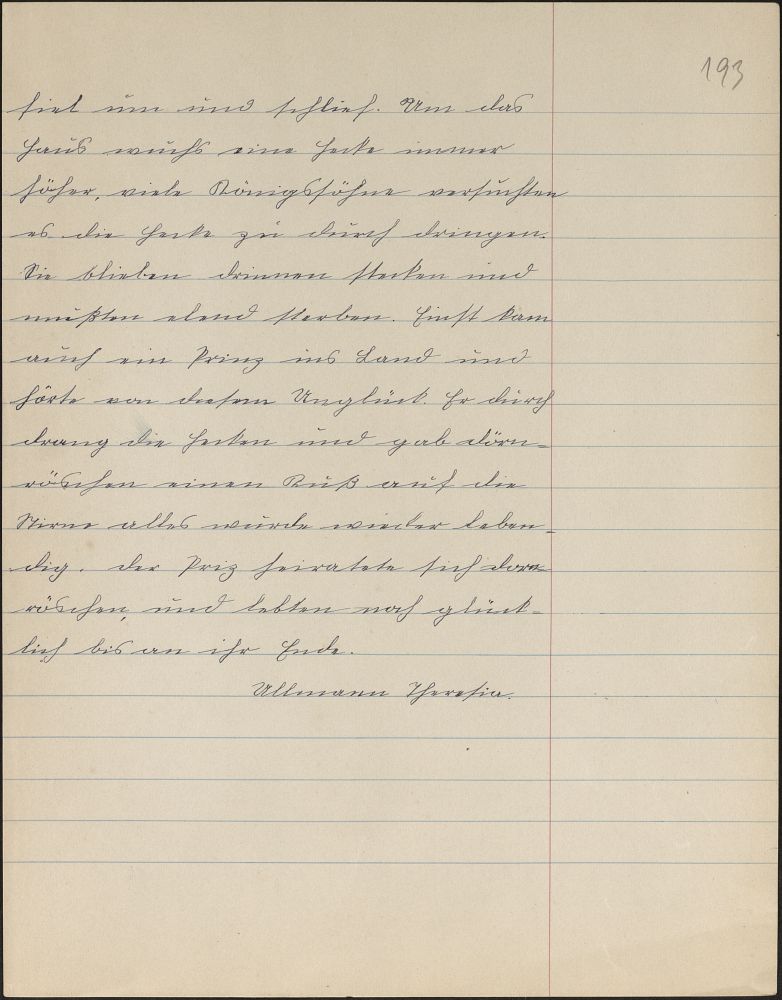 193
fiel um und schlief. Um das
Haus wuchs eine Hecke immer
höher, viele Königssöhne versuchten
es die Hecke zu durch dringen.
Sie blieben drinnen stecken und
mußten elend sterben. Einst kam
auch ein Prinz ins Land und
hörte von diesem Unglück. Er durch
drang die Hecken und gab dörn-
röschen einen Kuß auf die
Stirne alles wurde wieder leben-
dig. der Priz heiratete sich dorn
röschen, und lebten noch glück-
lich bis an ihr Ende.
Ullmann Theresia.